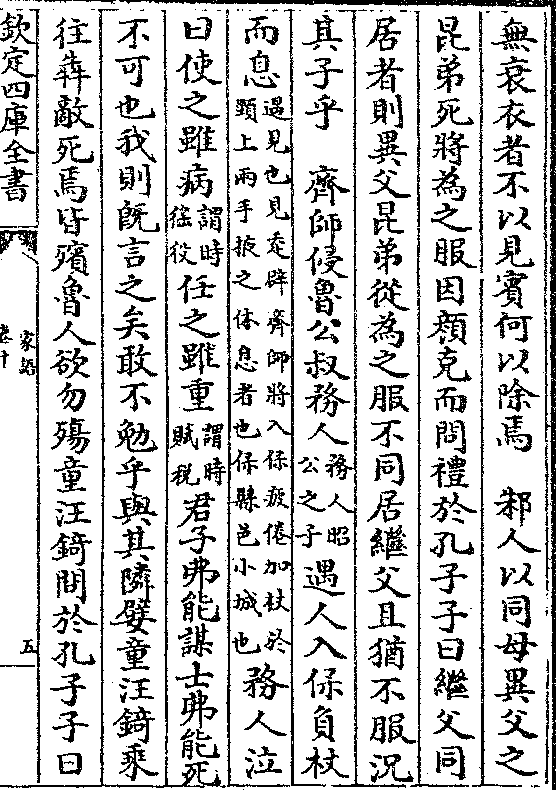 無衰衣者不以見賓何以除焉　邾人以同母異父之
昆弟死將為之服因顔克而問禮於孔子子曰繼父同
居者則異父昆弟從為之服不同居繼父且猶不服況
其子乎　齊師侵魯公叔務人務人昭公之子遇人入保負杖
而息遇見也見走辟齊師將入保疲倦加杖於頸上兩手掖之休息者也保縣邑小城也務人泣
曰使之雖病謂時徭役任之雖重謂時賦稅君子弗能謀士弗能死
不可也我則既言之矣敢不勉乎與其隣嬖童汪錡乘
往犇敵死焉皆殯魯人欲勿殤童汪錡問於孔子子曰
欽定四庫全書
家語
卷十
五